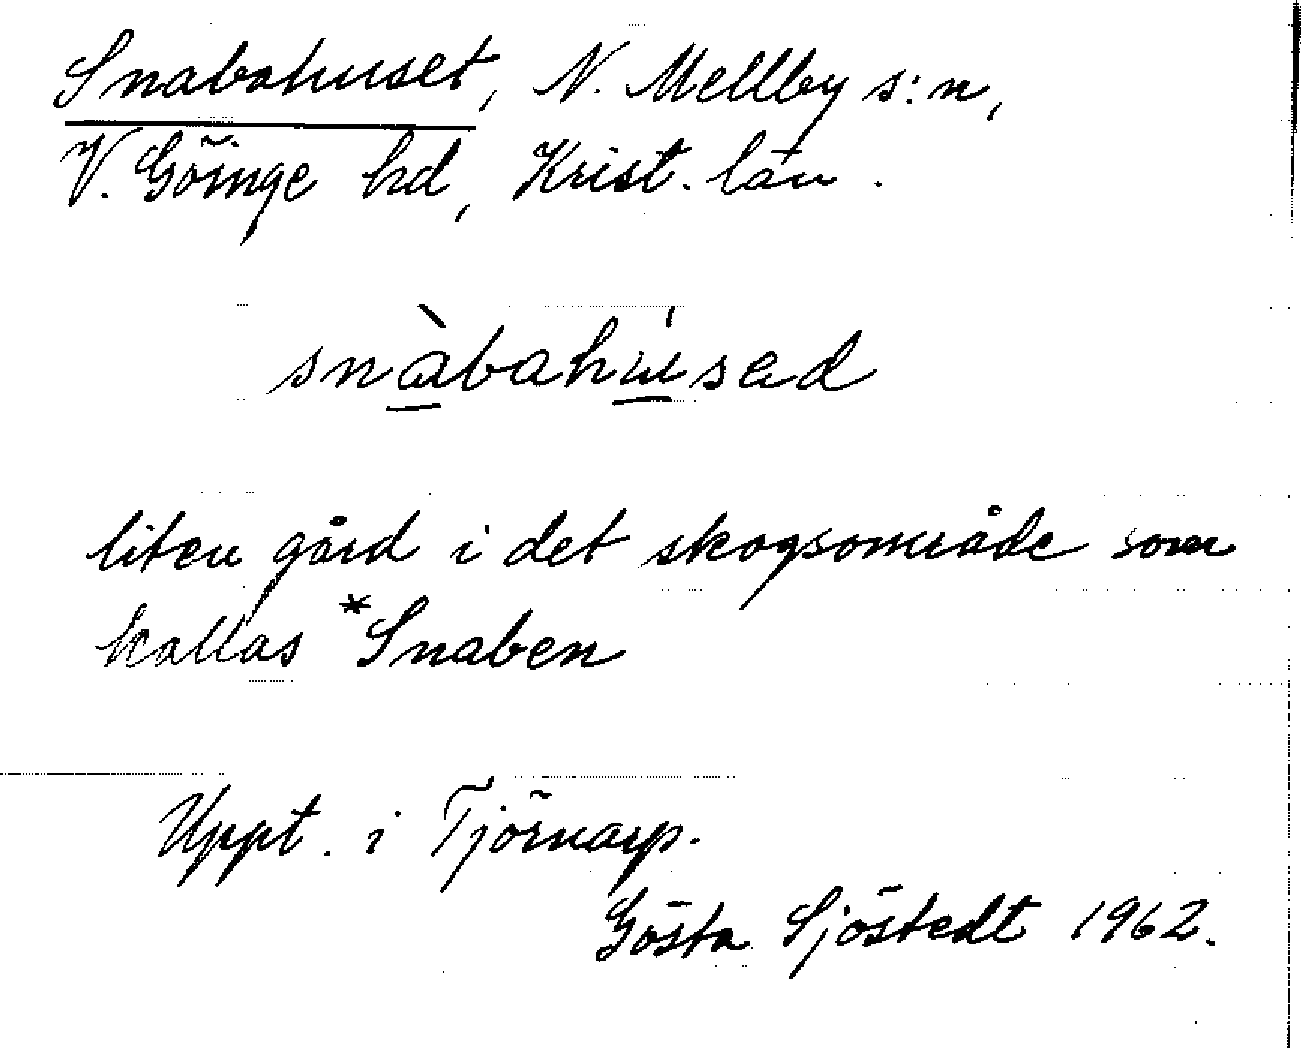 Snabahuset, N. Mellby s:n,
V. Göinge hd, Krist. län.
snàbahúsad
liten gård i det skogsområde som
kallas *Snaben
Uppt. i Tjörnarp.
Gösta Sjöstedt 1962.